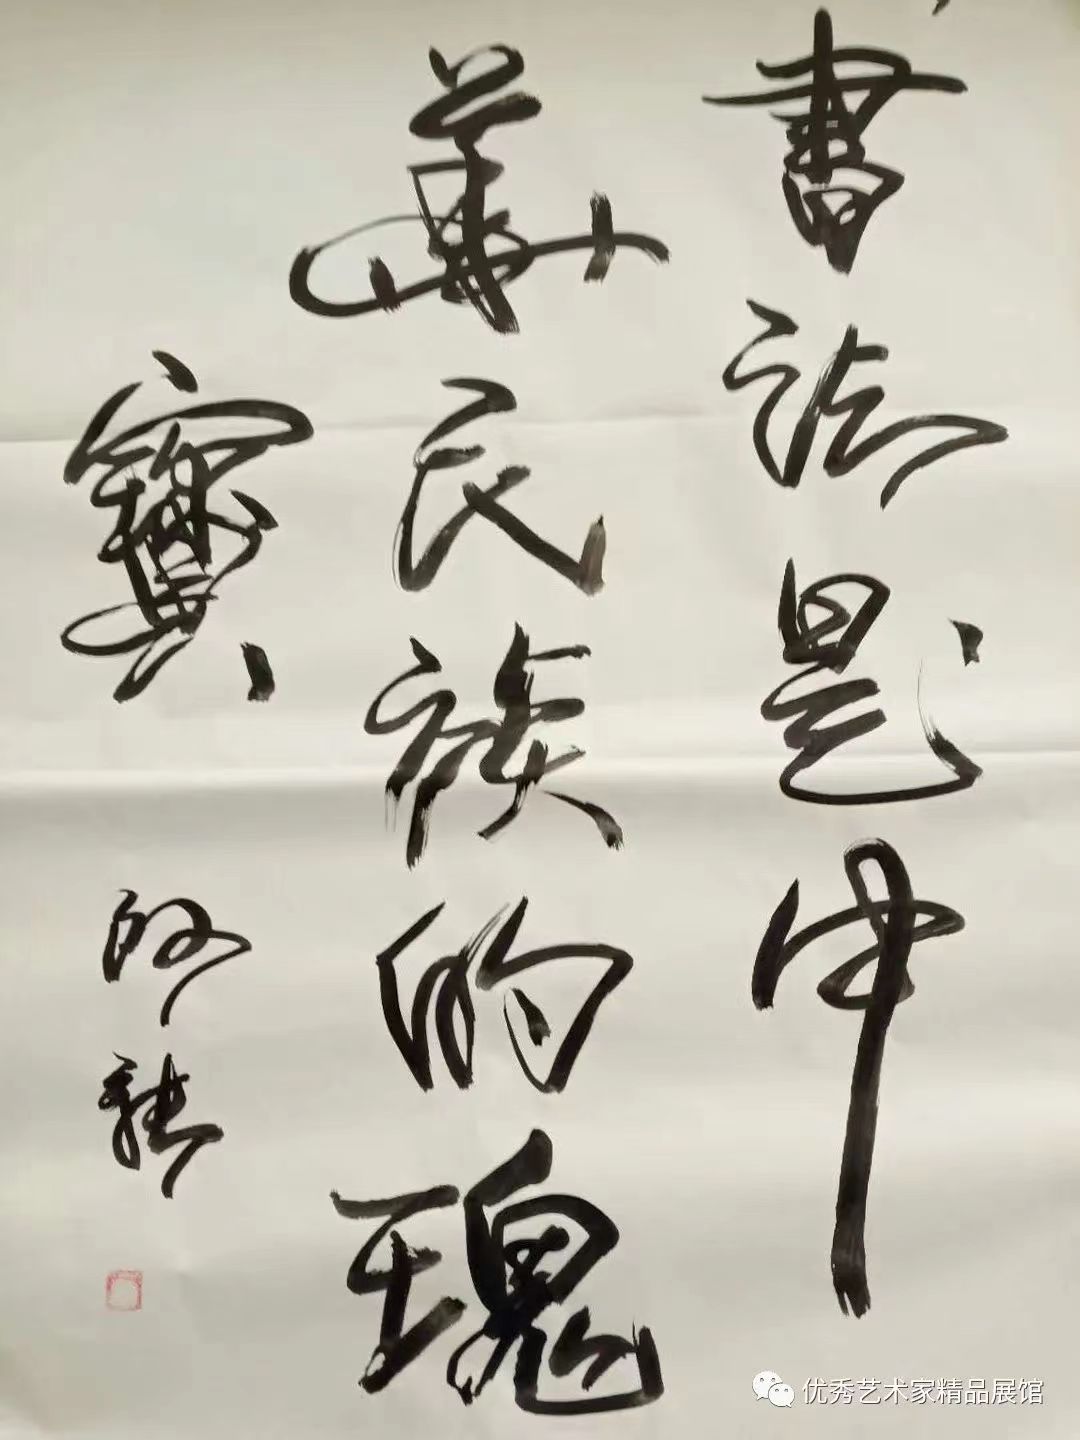 書法是中
華民族的瑰
寶
优秀艺术家精品展馆